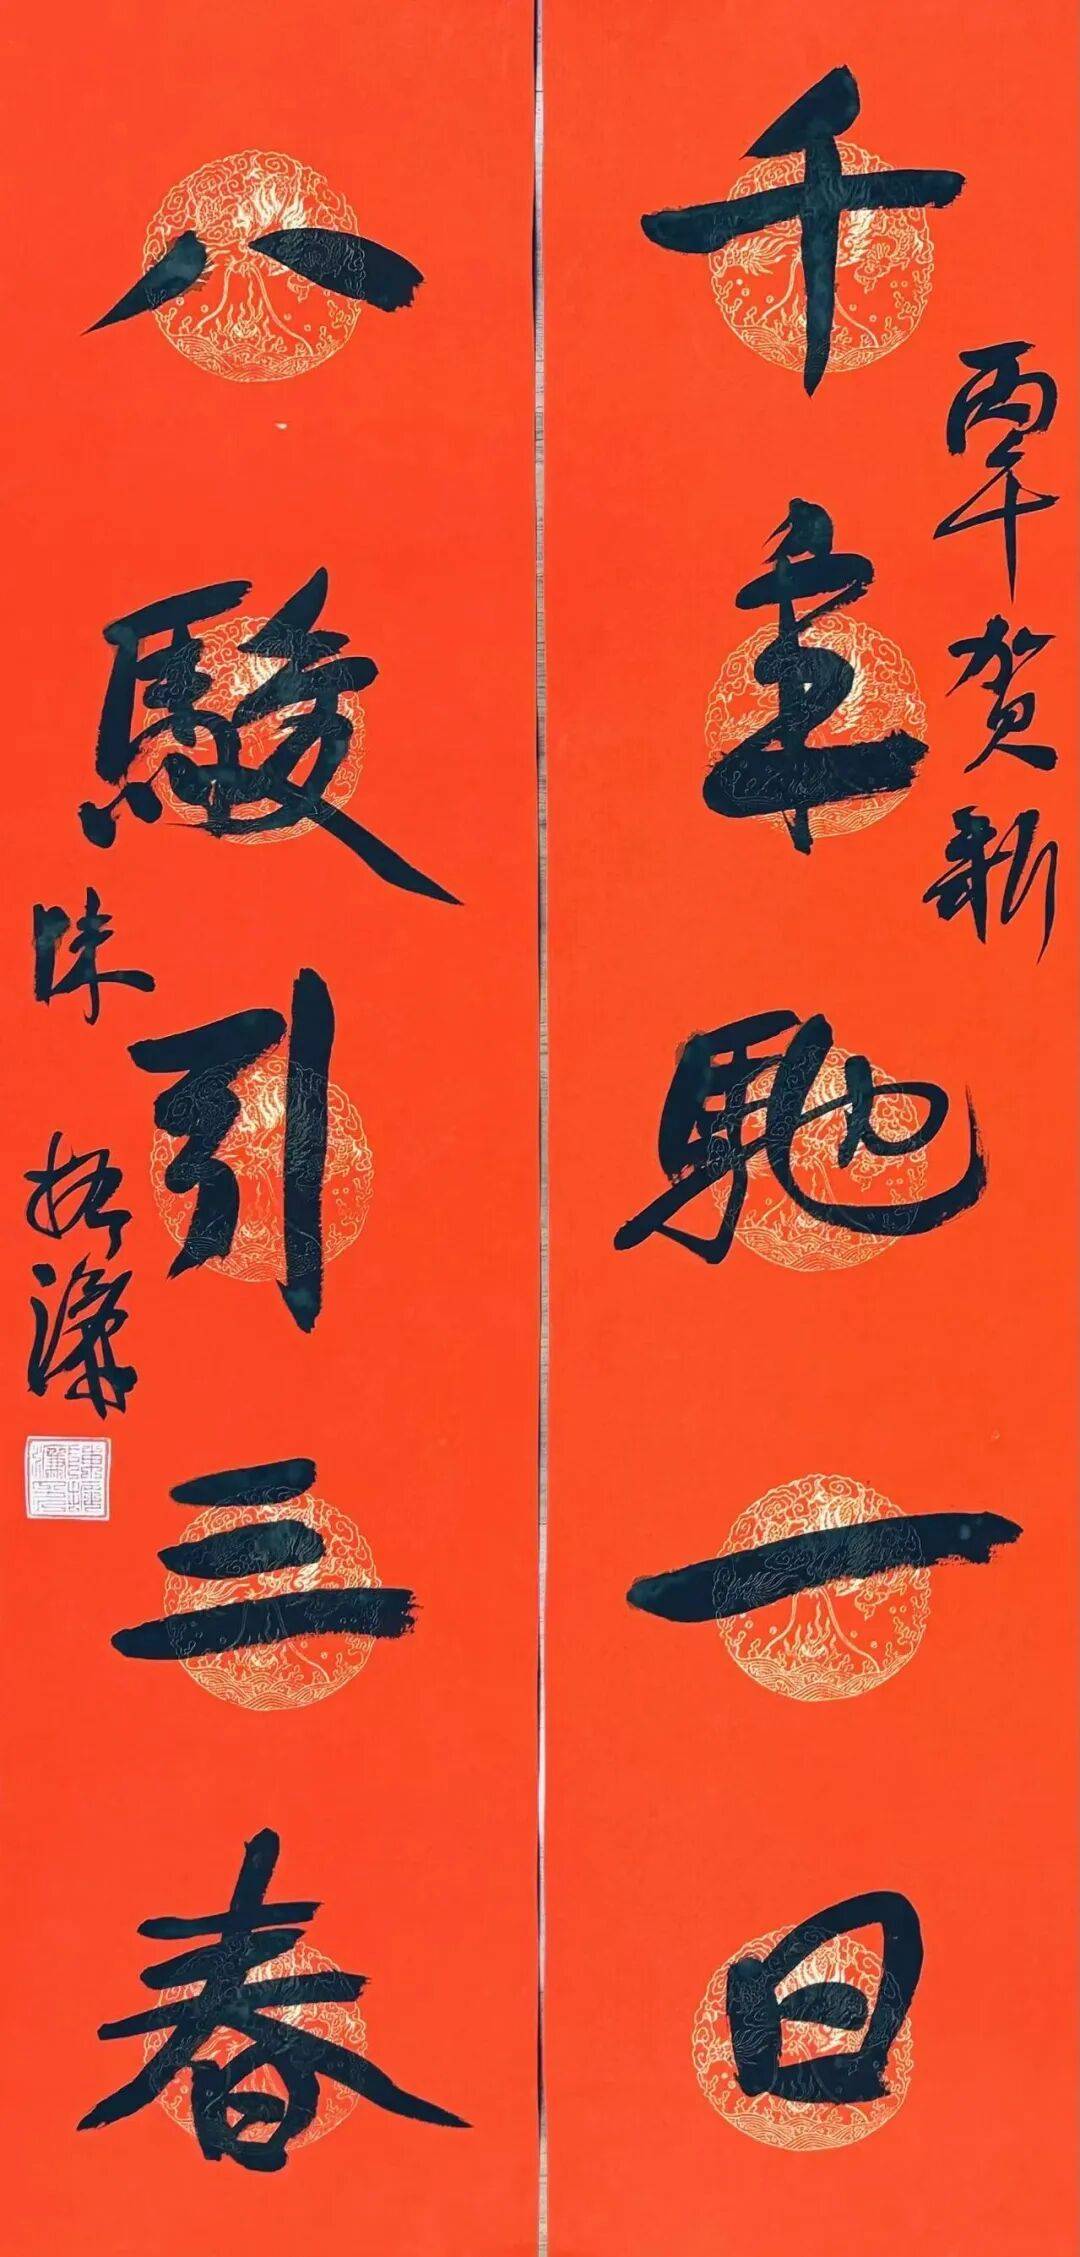 千車馳一日
丙午贺新
八駿引三春
陈振濂